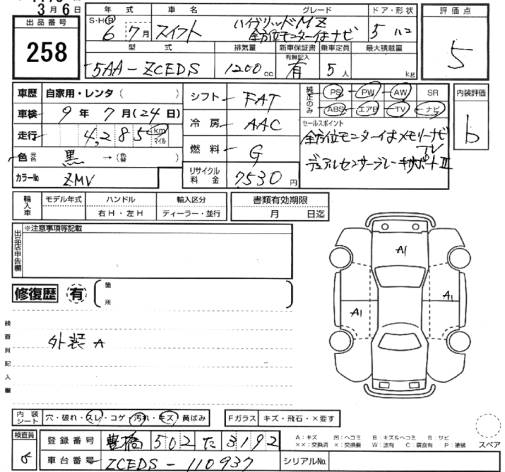 3月6日
出品番号 258
年式 S・H・R 6年 7月
車名 スイフト
グレード ハイブリッドMZ
全方位モニター付ナビ
ドア・形状 5 ハコ
評価点 5
型式 5AA-ZCEDS
排気量 1200cc
新車保証書 有無記入 有
乗車定員 5人
最大積載量 kg
車歴 自家用・レンタ( )
車検 9年7月(24日)
走行 4,285 km マイル
色 元色 黒 →(色替 )
カラーNo ZMV
シフト FAT
冷房 AAC
燃料 G
リサイクル料金 7530円
純正のみ PS PW AW SR
ABS エアB TV ナビ
セールスポイント
全方位モニター付メモリーナビ
TV
デュアルセンサーブレーキサポートⅡ
内装評価 b
輸入車 モデル年式 ハンドル 輸入区分
右H・左H ディーラー・並行
書類有効期限
月 日迄
出品店申告欄 ※注意事項等記載
修復歴 有 (箇所 )
検査員記入欄
外装 A
A1
A1 A1
内装シート 穴・破れ・スレ・コゲ・汚れ・キズ・黄ばみ
Fガラス キズ・飛石・×要す
A:キズ U:ヘコミ B:キズ&ヘコミ S:サビ
スペア
検査員
登録番号 豊橋 502 た 3192
車台番号 ZCEDS-110937
シリアルNo.